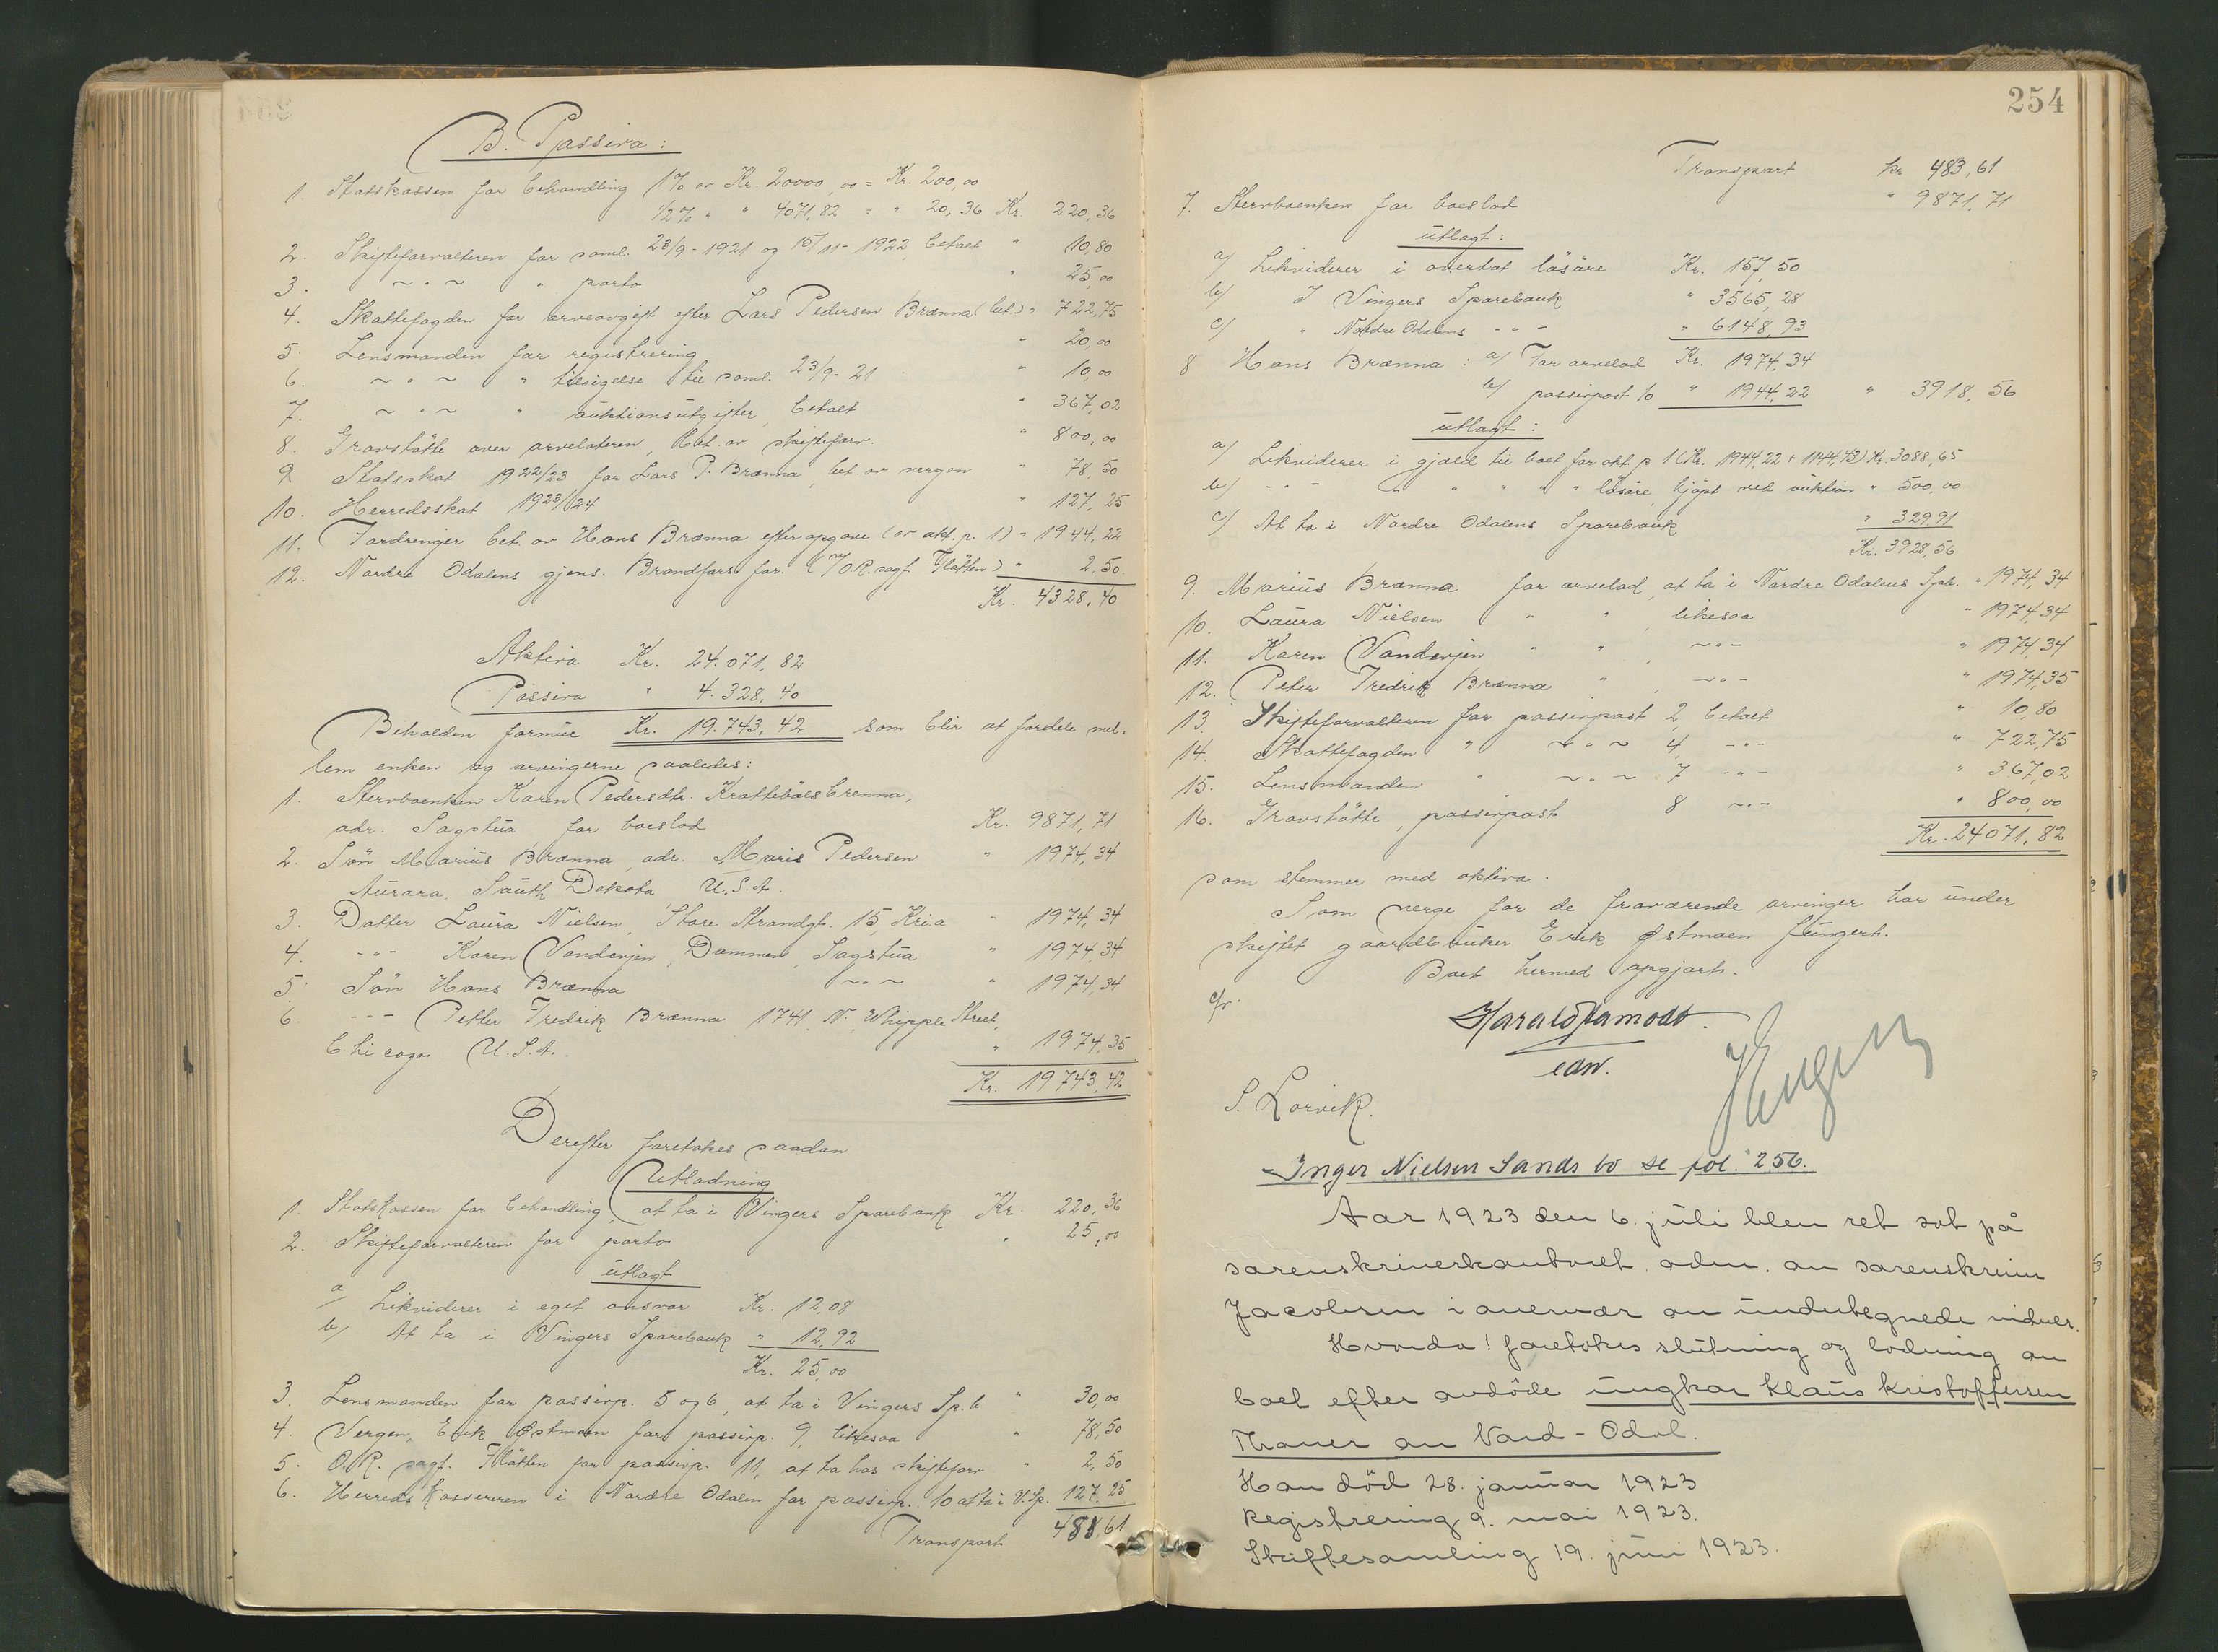 B. Passiva:
1. Statskassen for behandling 1% av Kr. 20000,00 = Kr. 200,00
1/2% " " 4071,82 = " 20,36 Kr. 220,36
2. Skifteforvalteren for saml. 23/9-1921 og 15/11-1922, betalt " 10,80
3. ~"~ " porto " 25,00
4. Skattefogden for arveavgift efter Lars Pedersen Brænna (bet.) " 722,75
5. Lensmanden for registrering " 20,00
6. ~"~ " tilsigelse til saml. 23/9-21 " 10,00
7. ~"~ " auktionsutgifter, betalt " 367,02
8. Gravstøtte over arvelateren, bet. av skifteforv. " 800,00
9 Statsskat 1922/23 for Lars P. Brænna, bet. av vergen " 78,50
10. Herredsskat 1923/24 " 127,25
11. Fordringer bet. av Hans Brænna efter opgave (av akt. p. 1) " 1944,22
12. Nordre Odalens gjens. Brandfors. for. (v/O.R. sagf. Fløtten) " 2,50
Kr. 4328,40
Aktiva Kr. 24.071,82
Passiva " 4.328,40
Beholden formue Kr. 19.743,42 som blir at fordele mel-
lem enken og arvingerne saaledes:
1. Stervboenken Karen Pedersdtr. Krattebølsbrenna,
adr. Sagstua for boeslod Kr. 9871,71
2. Søn Marius Brænna, adr. Maris Pedersen " 1974,34
Aurora, South Dakota U.S.A.
3. Datter Laura Nielsen, Store Strandgt. 15, Kria " 1974,34
4. -"- Karen Vanderjen, Dammen, Sagstua " 1974,34
5. Søn Hans Brænna ~"~ " 1974,34
6. -"- Petter Fredrik Brænna 1741 N. Whipple Street,
Chicago U.S.A. " 1974,35
Kr. 19743,42
Derefter foretokes saadan
Utlodning
1. Statskassen for behandling, at ta i Vingers Sparebank Kr. 220,36
2. Skifteforvalteren for porto " 25,00
utlagt
a/ Likviderer i eget ansvar Kr. 12,08
b/ At ta i Vingers Sparebank " 12,92
Kr. 25,00
3. Lensmanden for passivp. 5 og 6, at ta i Vingers Sp.b " 30,00
4. Vergen, Erik Østmoen for passivp. 9, likesaa " 78,50
5. O.R. sagf. Fløtten for passivp. 11, at ta hos skifteforv " 2,50
6. Herredskassereren i Nordre Odalen for passivp. 10 at ta i V.Sp. 127,25
Transport 483,61
254
Transport kr 483,61
7. Stervboenken for boeslod " 9871,71
utlagt:
a/ Likviderer i overtat løsøre Kr. 157,50
b/ I Vingers Sparebank " 3565,28
c/ " Nordre Odalens -"- " 6148,93
8 Hans Brænna: a/ For arvelod Kr. 1974,34
b/ passivpost 10 " 1944,22 " 3918,56
utlagt:
a/ Likviderer i gjæld til boet for akt. p 1 (Kr. 1944,22 + 1144,43) Kr. 3088,65
b/ -"- " " " " " løsøre, kjøpt ved auktion " 500,00
c/ At ta i Nordre Odalens Sparebank " 329,91
Kr. 3928,56
9. Marius Brænna for arvelod, at ta i Nordre Odalens Spb. " 1974,34
10. Laura Nielsen " " , likesaa " 1974,34
11. Karen Vanderjen " " , ~"- " 1974,34
12. Peter Fredrik Brænna " , ~"- " 1974,35
13. Skifteforvalteren for passivpost 2, betalt " 10,80
14. Skattefogden " ~"~ 4, -"- " 722,75
15. Lensmanden " ~"~ 7 -"- " 367,02
16. Gravstøtte, passivpost 8 ~"- " 800,00
Kr. 24071,82
som stemmer med aktiva.
Som verge for de fraværende arvinger har under
skiftet gaardbruker Erik Østmoen fungert.
Boet hermed opgjort.
Harald Hamodt.
edv.
S. Lorvik.
Inger Nielsen Sands bo se fol. 256.
Aar 1923 den 6. juli blev ret sat på
sorenskriverkontoret, adm. av sorenskriver
Jacobsen i overvær av undertegnede vidner.
Hvorda! foretokes slutning og lodning av
boet efter avdöde ungkar Klaus Kristoffersen
Thaner av Nord-Odal.
Han död 28. januar 1923
Registrering 9. mai 1923.
Skiftesamling 19. juni 1923.